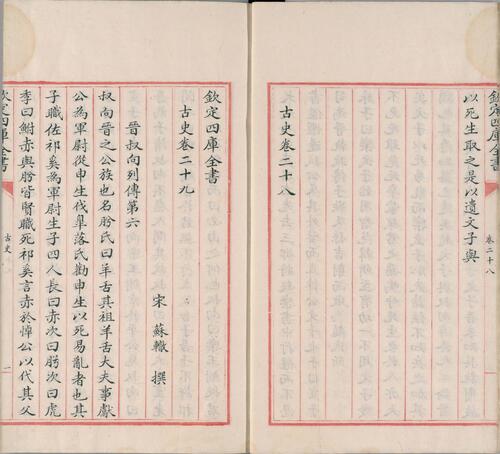 欽定四庫全書
卷二十八
以死生取之是以遺文子與
古史卷二十八
欽定四庫全書
古史卷二十九
宋 蘇轍 撰
晉叔向列傳第六
叔向晉之公族也名肸氏曰羊舌其祖羊舌大夫事獻
公為軍尉從申生伐臯落氏勸申生以死易亂者也其
子職佐祁奚為軍尉生子四人長曰赤次曰肸次曰虎
季曰鮒赤與肸皆賢職死祁奚言赤於悼公以代其父
欽定四庫全書
古史
一